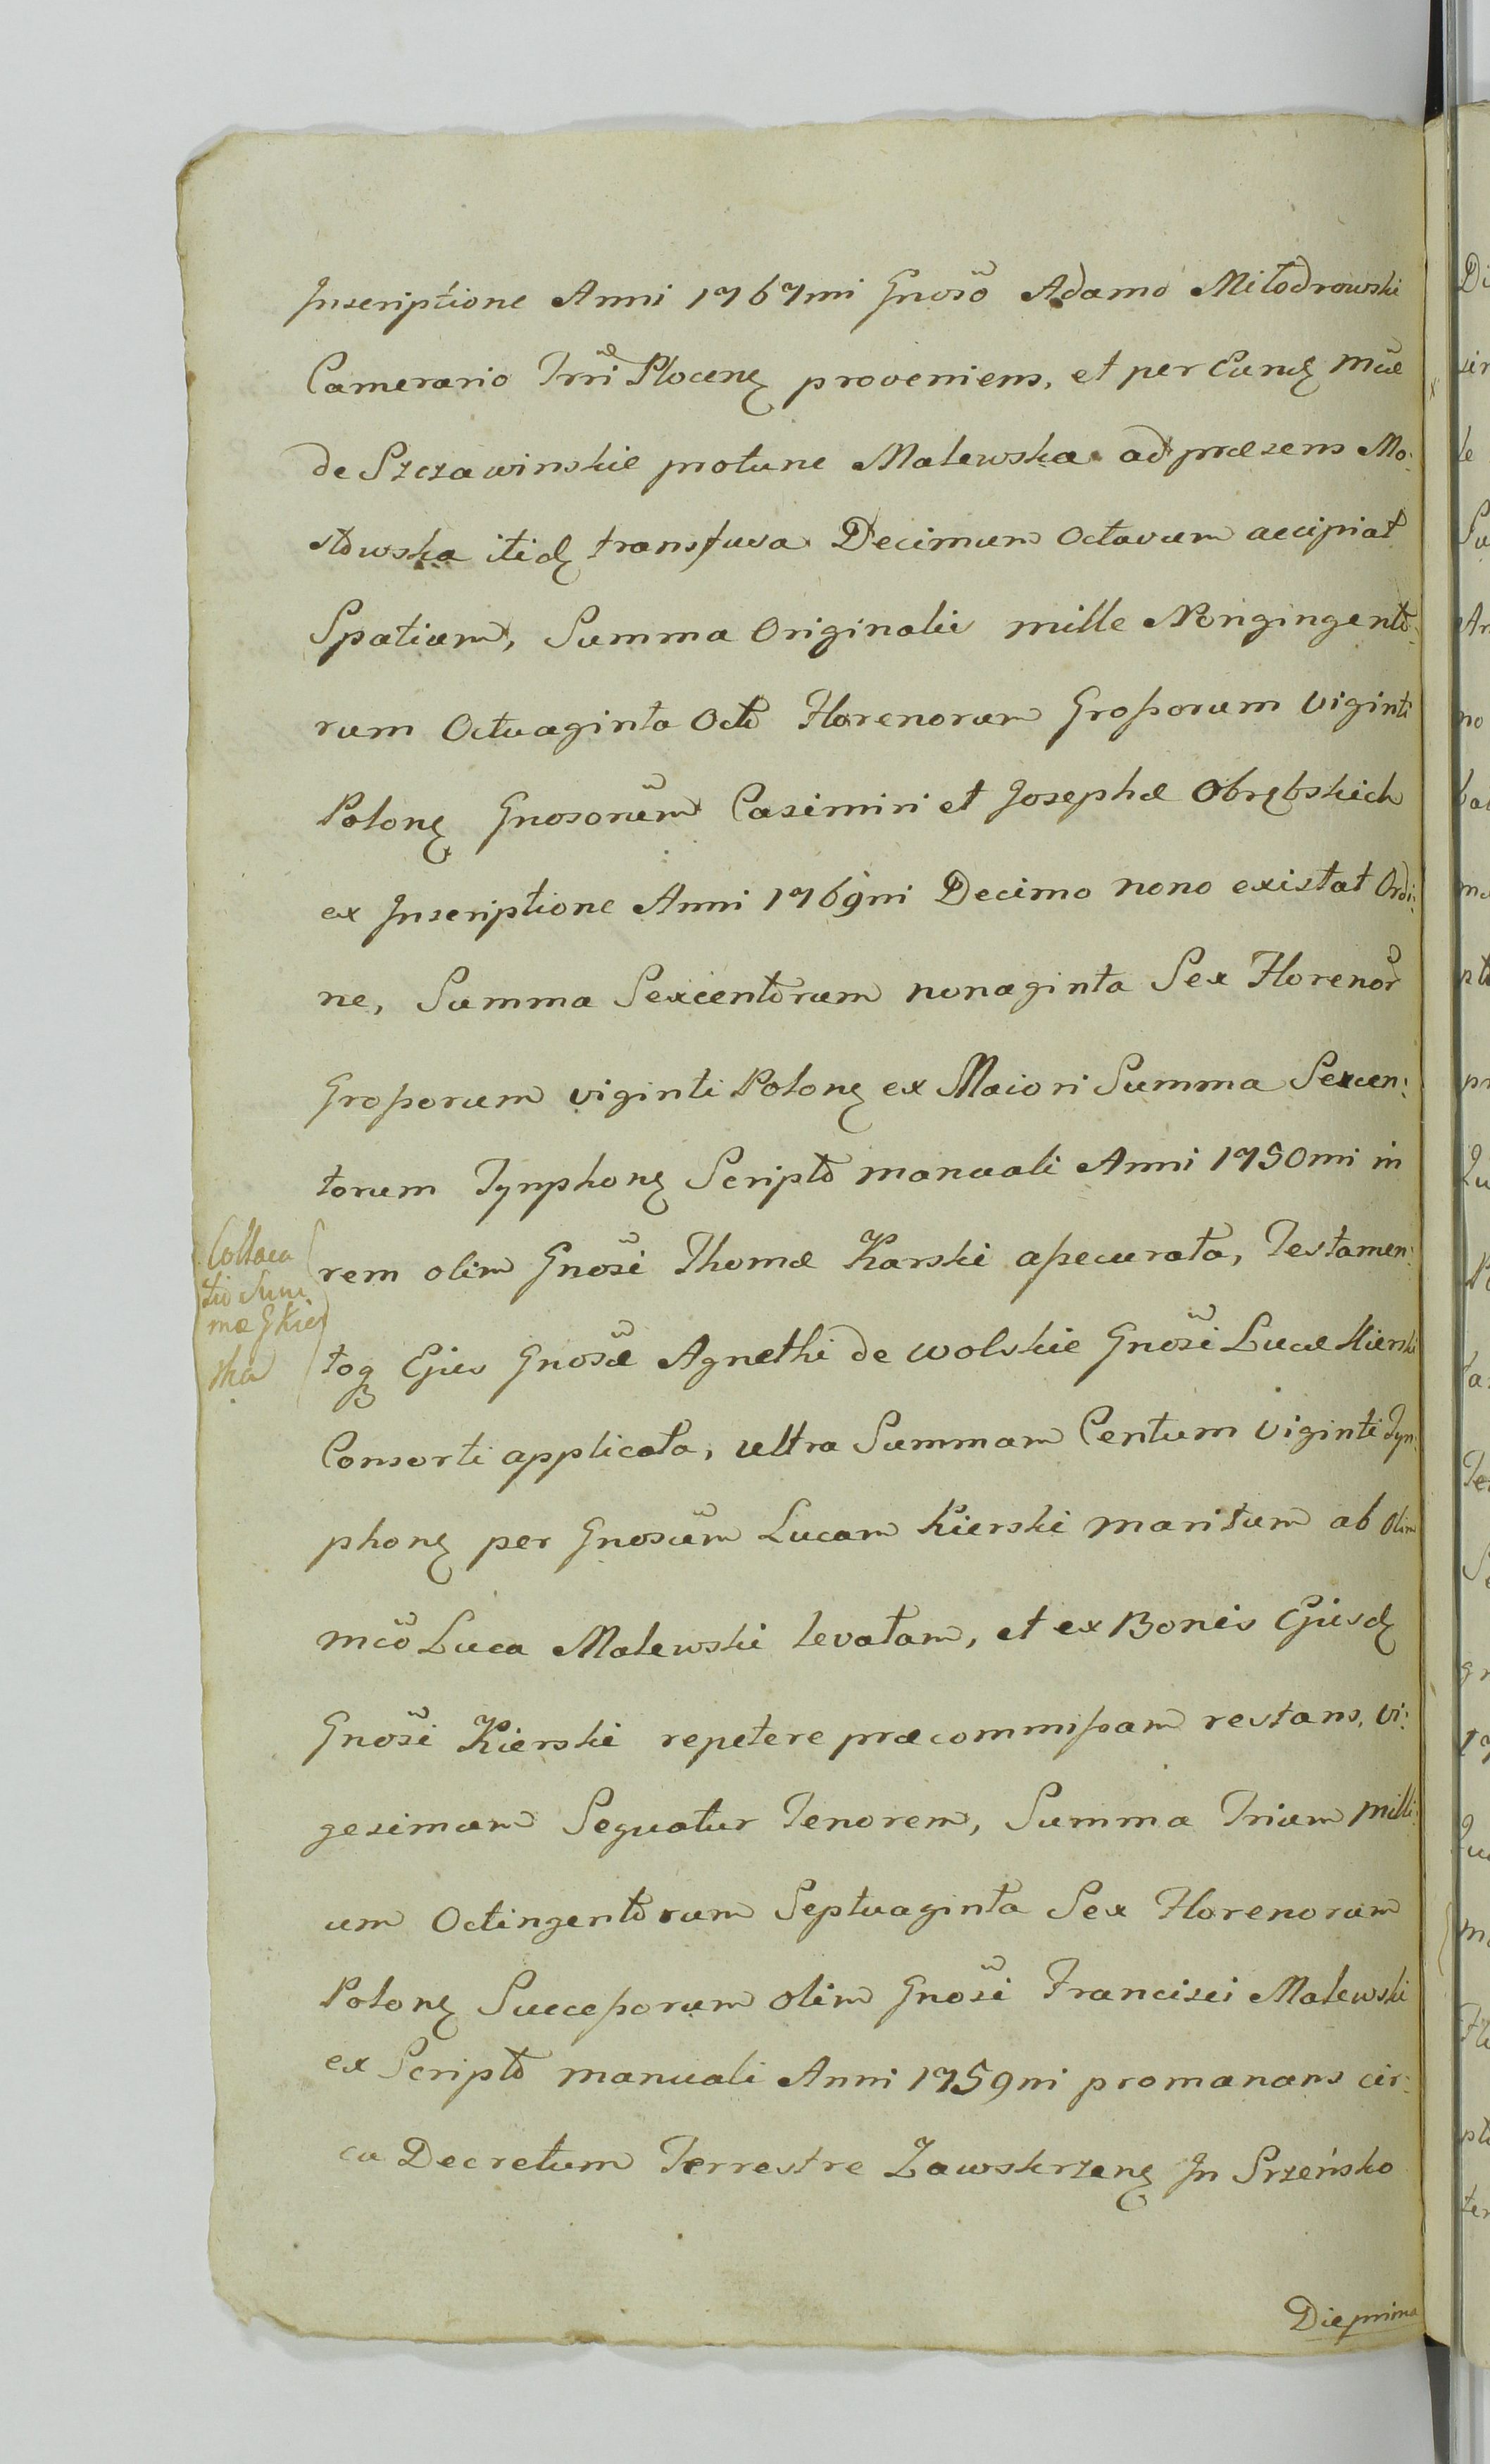 Inscriptione Anni 1767mi Gnoso Adamo Miłodrowski
Camerario Trri Plocen̄ proveniens, et per Eund̄ Mcae
de Szczawinskie protunc Malewska ad praesens Mo:
stowska itid̄ transfusa Decimum Octavum accipiat
Spatium, Summa Originalis mille Nongingento:
rum Octuaginta Octo Florenorum Grossorum viginti
Polon̄ Gnosorum Casimiri et Josephae Obrębskich
ex Inscriptione Anni 1769ni Decimo nono existat Ordi:
ne, Summa Sexcentorum nonaginta Sex Florenor
Grossorum viginti Polon̄ ex Maiori Summa Sexcen:
torum Tynphon̄ Scripto manuali Anni 1750mi in
rem olim Gnosi Thomae Karski assecurata, Testamen:
toq Ejus Gnosae Agnethi de Wolskie Gnosi Lucae Kierski
Consorti applicata, ultra Summam Centum viginti Tyn:
phon̄ per Gnosum Lucam Kierski maritum ab olim
Mco Luca Malewski levatam, et ex Bonis Ejusd̄
Gnosi Kierski repetere praecommissam restans, vi:
gesimum Sequatur Tenorem, Summa Trium Milli:
um Octingentorum Septuaginta Sex Florenorum
Polon̄ Successorum olim Gnosi Francisci Malewski
ex Scripto manuali Anni 1759ni promanans cir:
ca Decretum Terrestre Zawskrzen̄ In Srzeńsko
Die prima
Colloca
tio Sum
mae
ska